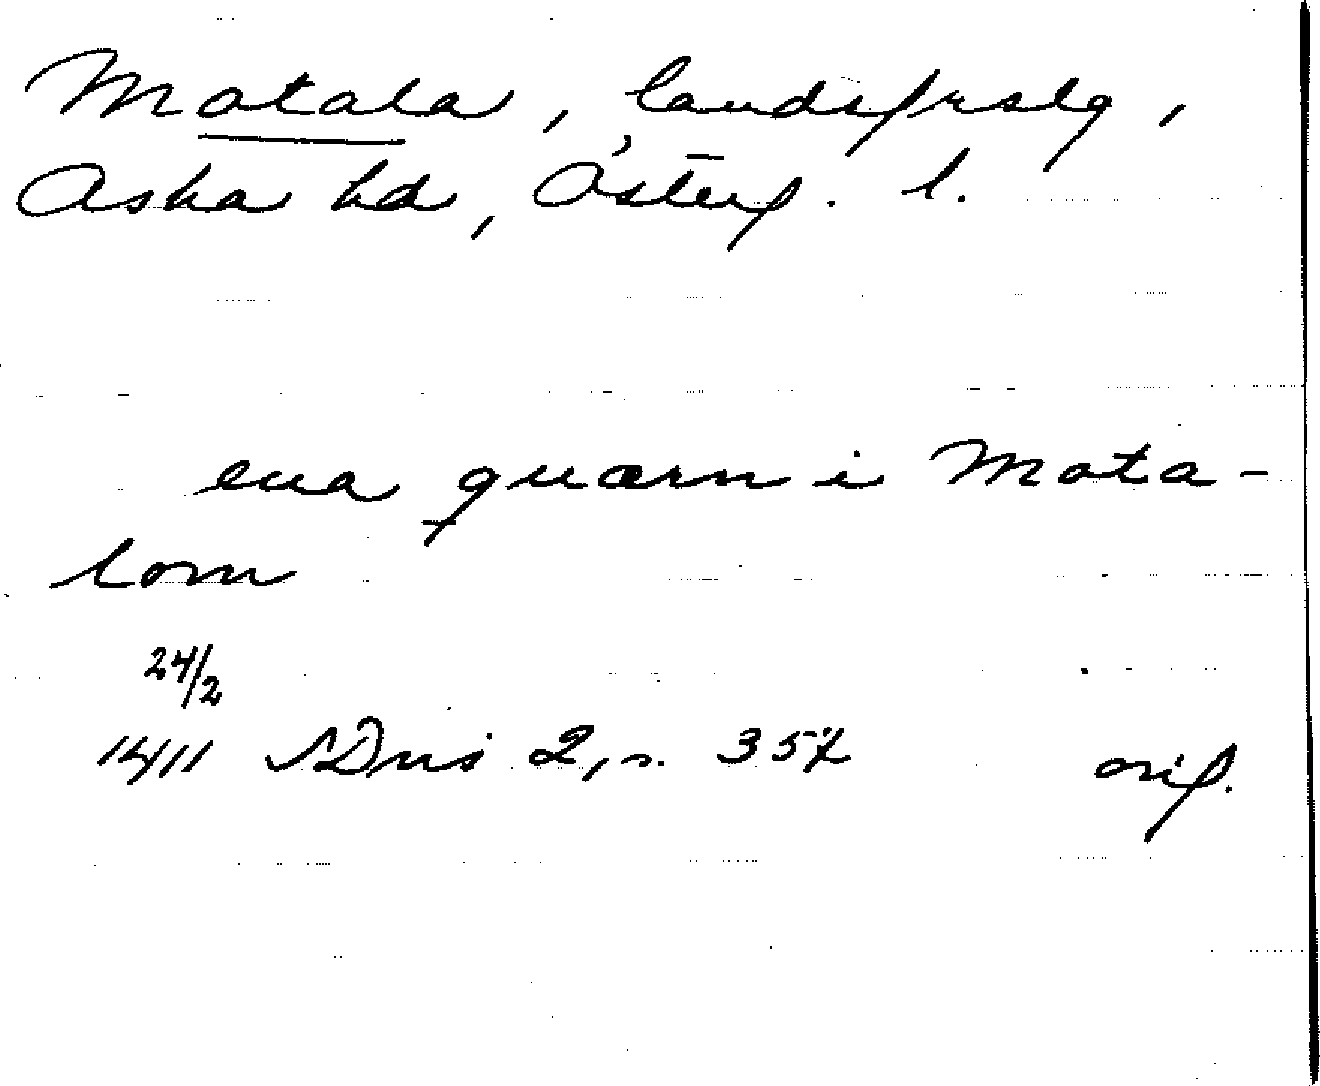 Motala, landsfrslg,
Aska hd, Österg. l.
ena quærn i Mota-
lom
24/2
1411 SDns 2, s. 357
orig.